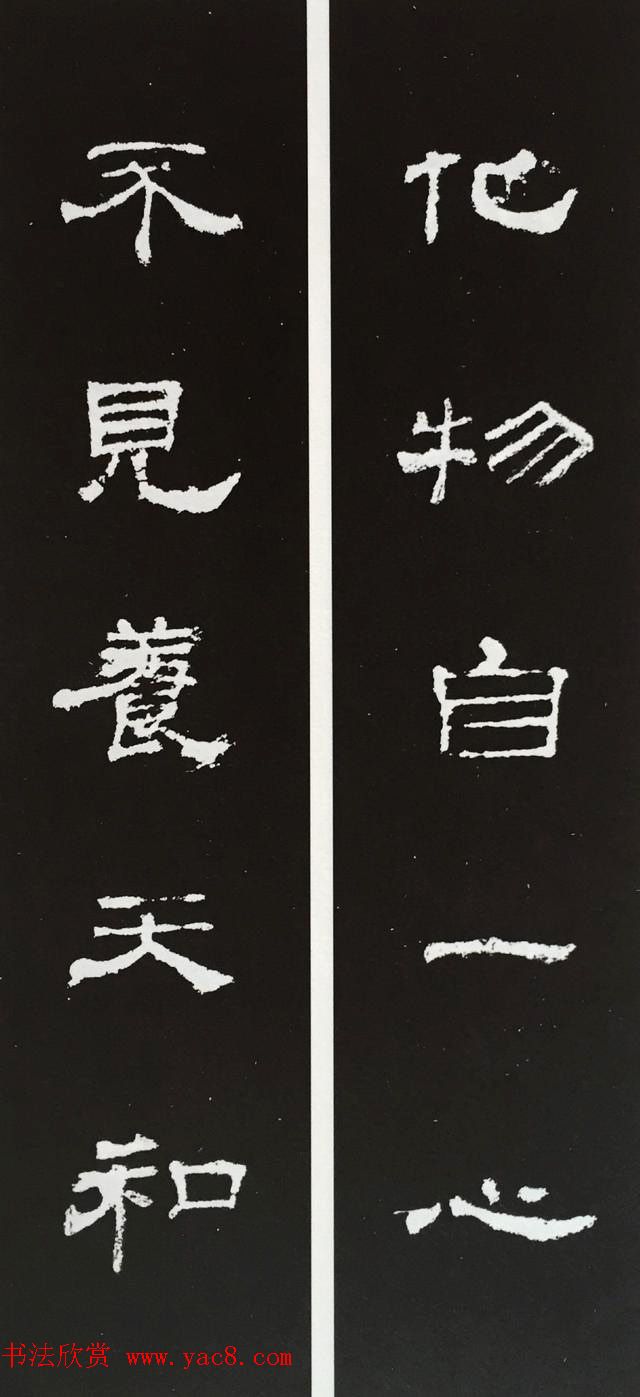 化物自一心
不見養天和
书法欣赏 www.yac8.com